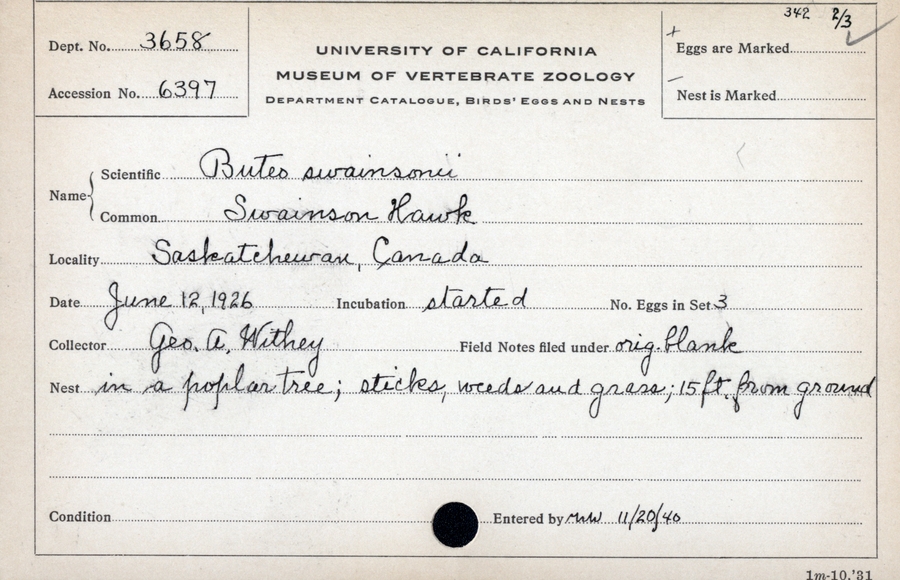 342 2/3
Dept. No. 3658
Accession No. 6397
UNIVERSITY OF CALIFORNIA
MUSEUM OF VERTEBRATE ZOOLOGY
DEPARTMENT CATALOGUE, BIRDS' EGGS AND NESTS
+
Eggs are Marked
–
Nest is Marked
Name { Scientific Buteo swainsonii
Common Swainson Hawk
Locality Saskatchewan, Canada
Date June 12, 1926 Incubation started No. Eggs in Set 3
Collector Geo. A. Withey Field Notes filed under orig. blank
Nest in a poplar tree; sticks, weeds and grass; 15 ft. from ground
Condition Entered by 11/20/40
1m-10,'31